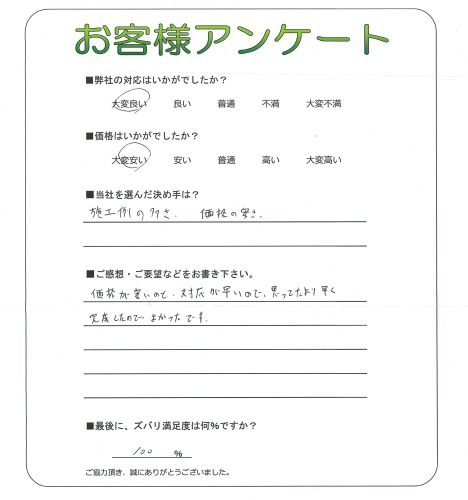 お客様アンケート
■弊社の対応はいかがでしたか？
大変良い 良い 普通 不満 大変不満
■価格はいかがでしたか？
大変安い 安い 普通 高い 大変高い
■当社を選んだ決め手は？
施工例の多さ. 価格の安さ.
■ご感想・ご要望などをお書き下さい。
価格が安いのと、対応が早いので、思ってたより早く
完成したので よかったです.
■最後に、ズバリ満足度は何%ですか？
100 %
ご協力頂き、誠にありがとうございました。